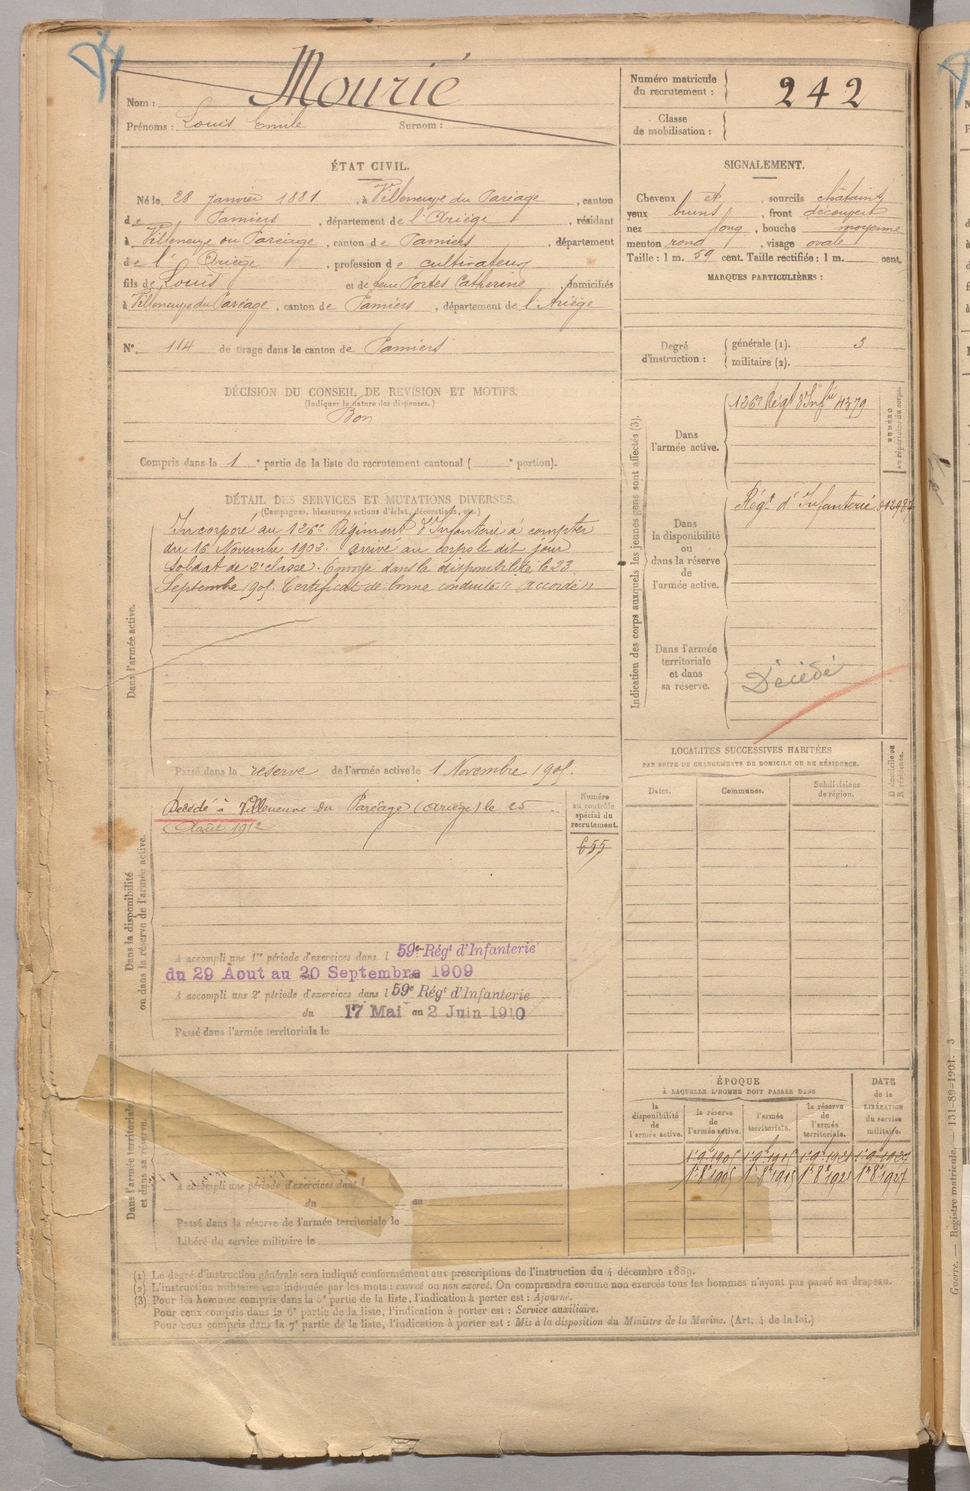 Nom : Mourié
Prénoms : Louis Emile Surnom :
Numéro matricule du recrutement : 242
Classe de mobilisation :
ÉTAT CIVIL.
Né le 28 janvier 1881, à Villeneuve du Paréage, canton
de Pamiers, département de l'Ariège, résidant
à Villeneuve du Paréage, canton de Pamiers, département
de l'Ariège, profession de cultivateur
fils de Louis et de feue Portes Catherine, domiciliés
à Villeneuve du Paréage, canton de Pamiers, département de l'Ariège
N° 114 de tirage dans le canton de Pamiers
SIGNALEMENT.
Cheveux et, sourcils châtains
yeux bruns, front découvert
nez long, bouche moyenne
menton rond, visage ovale
Taille : 1 m. 59 cent. Taille rectifiée : 1 m. cent.
MARQUES PARTICULIÈRES :
Degré d'instruction : générale (1). 3
militaire (2).
DÉCISION DU CONSEIL DE REVISION ET MOTIFS.
(Indiquer la nature des dispenses.)
Bon
Compris dans la 1e partie de la liste du recrutement cantonal ( e portion).
DÉTAIL DES SERVICES ET MUTATIONS DIVERSES.
(Campagnes, blessures, actions d'éclat, décorations, etc.)
Dans l'armée active.
Incorporé au 126e Régiment d'Infanterie à compter
du 16 Novembre 1902. arrivé au corps le dit jour
soldat de 2e classe. Envoyé dans la disponibilité le 23
Septembre 1905. Certificat de bonne conduite "accordé"
Passé dans la réserve de l'armée active le 1 Novembre 1905.
Indication des corps auxquels les jeunes gens sont affectés (3).
NUMÉRO au répertoire du corps.
Dans l'armée active.
126e Régt d'Infie 4379
Dans la disponibilité ou dans la réserve de l'armée active.
Régt d'Infanterie
Dans l'armée territoriale et dans sa réserve.
Décédé
Dans la disponibilité ou dans la réserve de l'armée active.
Décédé à Villeneuve du Paréage (Ariège) le 25
Août 1912
Numéro au contrôle spécial du recrutement.
655
A accompli une 1re période d'exercices dans l 59e Régt d'Infanterie
du 29 Août au 20 Septembre 1909
A accompli une 2e période d'exercices dans l 59e Régt d'Infanterie
du 17 Mai au 2 Juin 1910
Passé dans l'armée territoriale le
LOCALITÉS SUCCESSIVES HABITÉES
PAR SUITE DE CHANGEMENTS DE DOMICILE OU DE RÉSIDENCE.
Dates. Communes. Subdivisions de région. D domicile ou R résidence.
Dans l'armée territoriale et dans sa réserve.
A accompli une période d'exercices dans l
du au
Passé dans la réserve de l'armée territoriale le
Libéré du service militaire le
ÉPOQUE
À LAQUELLE L'HOMME DOIT PASSER DANS
DATE de la LIBÉRATION du service militaire.
la disponibilité de l'armée active. la réserve de l'armée active. l'armée territoriale. la réserve de l'armée territoriale.
(1) Le degré d'instruction générale sera indiqué conformément aux prescriptions de l'instruction du 4 décembre 1889.
(2) L'instruction militaire sera indiquée par les mots : exercé ou non exercé. On comprendra comme non exercés tous les hommes n'ayant pas passé au drapeau.
(3) Pour les hommes compris dans la 5e partie de la liste, l'indication à porter est : Ajourné.
Pour ceux compris dans la 6e partie de la liste, l'indication à porter est : Service auxiliaire.
Pour ceux compris dans la 7e partie de la liste, l'indication à porter est : Mis à la disposition du Ministre de la Marine. (Art. 4 de la loi.)
Guerre. — Registre matricule. — 131-89-1901. 3